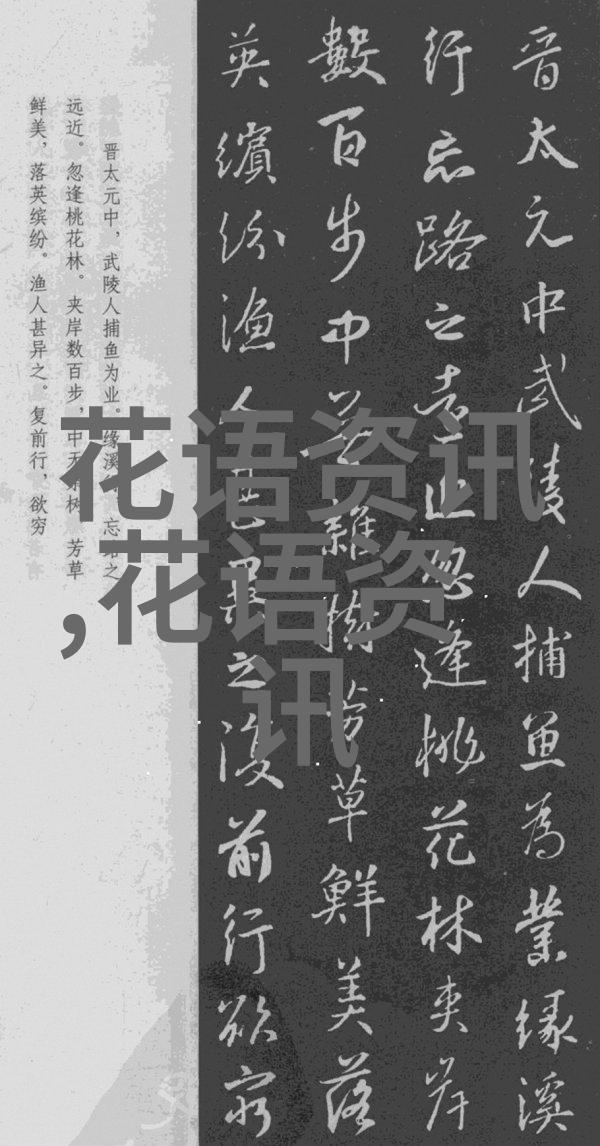 晋太元中武陵人捕魚為業緣溪
行忘路之遠近忽逢桃花林夾岸
數百步中無雜樹芳草鮮美落
英繽紛漁人甚異之復前行欲窮
晋太元中，武陵人捕鱼为业。缘溪 忘路之
远近。忽逢桃花林。夹岸数百步，中无杂树 芳草
鲜美，落英缤纷。渔人甚异之。复前行，欲穷
花语资讯
,花语资
讯